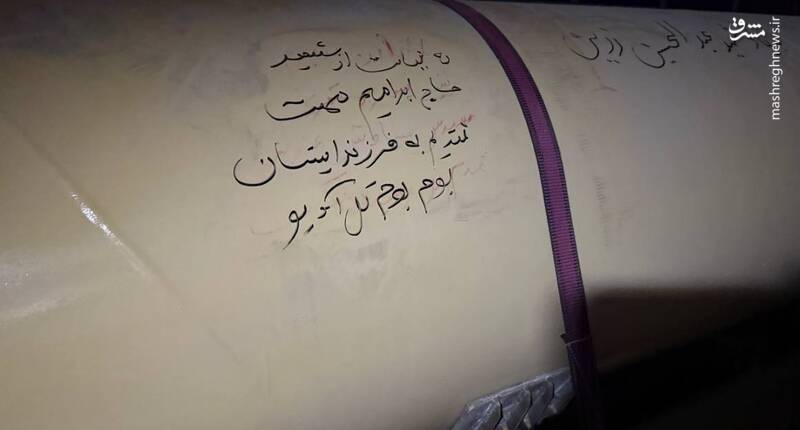 به نیابت از شهید
حاج ابراهیم همت
تقدیم به فرزند ایشان
بوم بوم تل آویو
عبد الحسین
مشرق
mashreghnews.ir